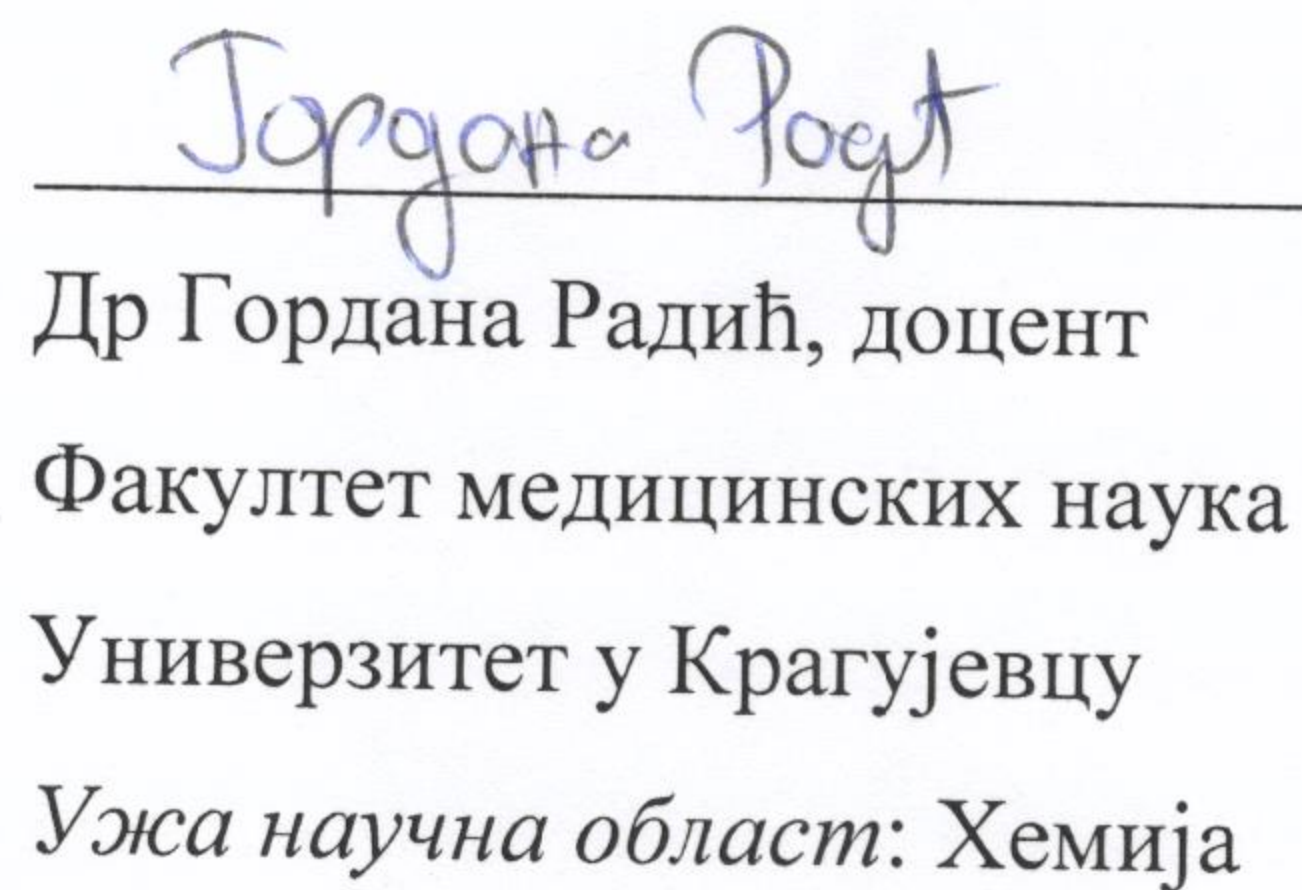 Гордана Радић
Др Гордана Радић, доцент
Факултет медицинских наука
Универзитет у Крагујевцу
Ужа научна област: Хемија